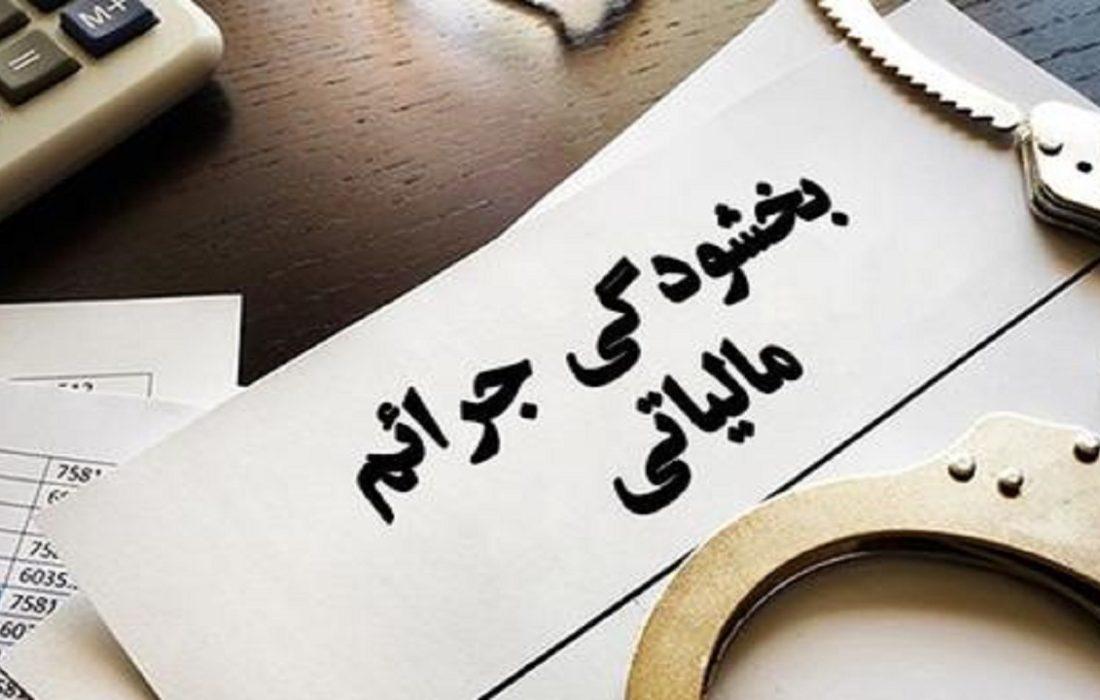 M+
=
بخشودگی جرائم
مالیاتی
7581
75
6035
7581
607